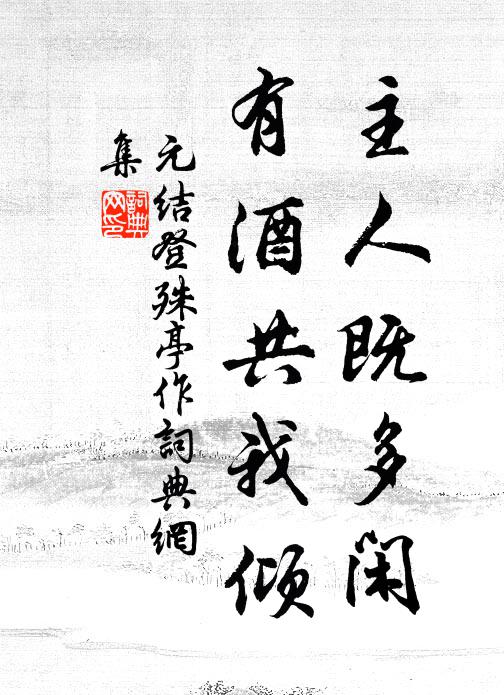 主人既多闲
有酒共我倾
元结登殊亭作詞典網
集
詞典
网印